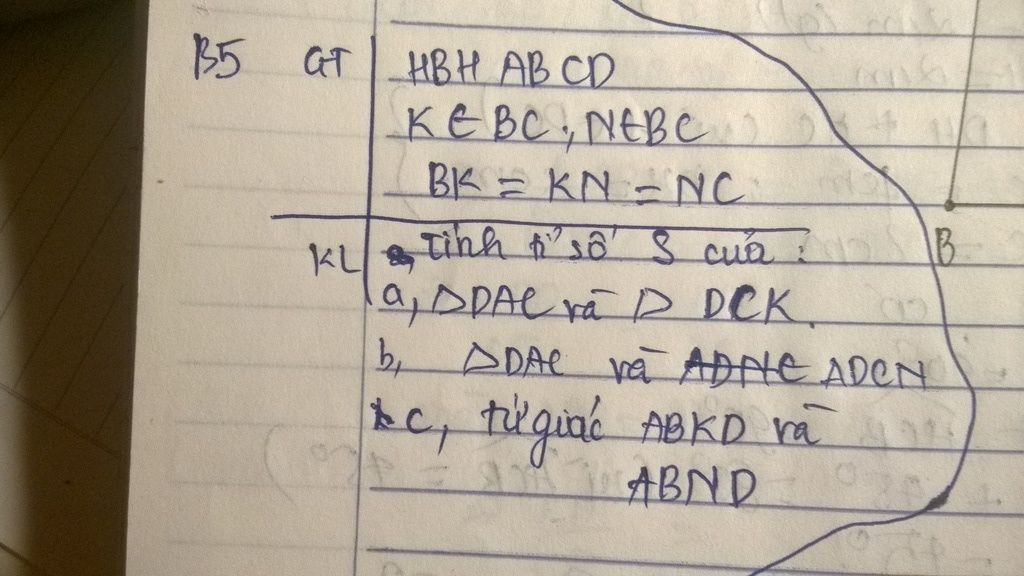 B5 GT HBH ABCD
K ∈ BC; N ∈ BC
BK = KN = NC
KL Tính tỉ số S của:
B
a, △DAC và △ DCK.
b, △DAC và ADCN
c, tứ giác ABKD và
ABND